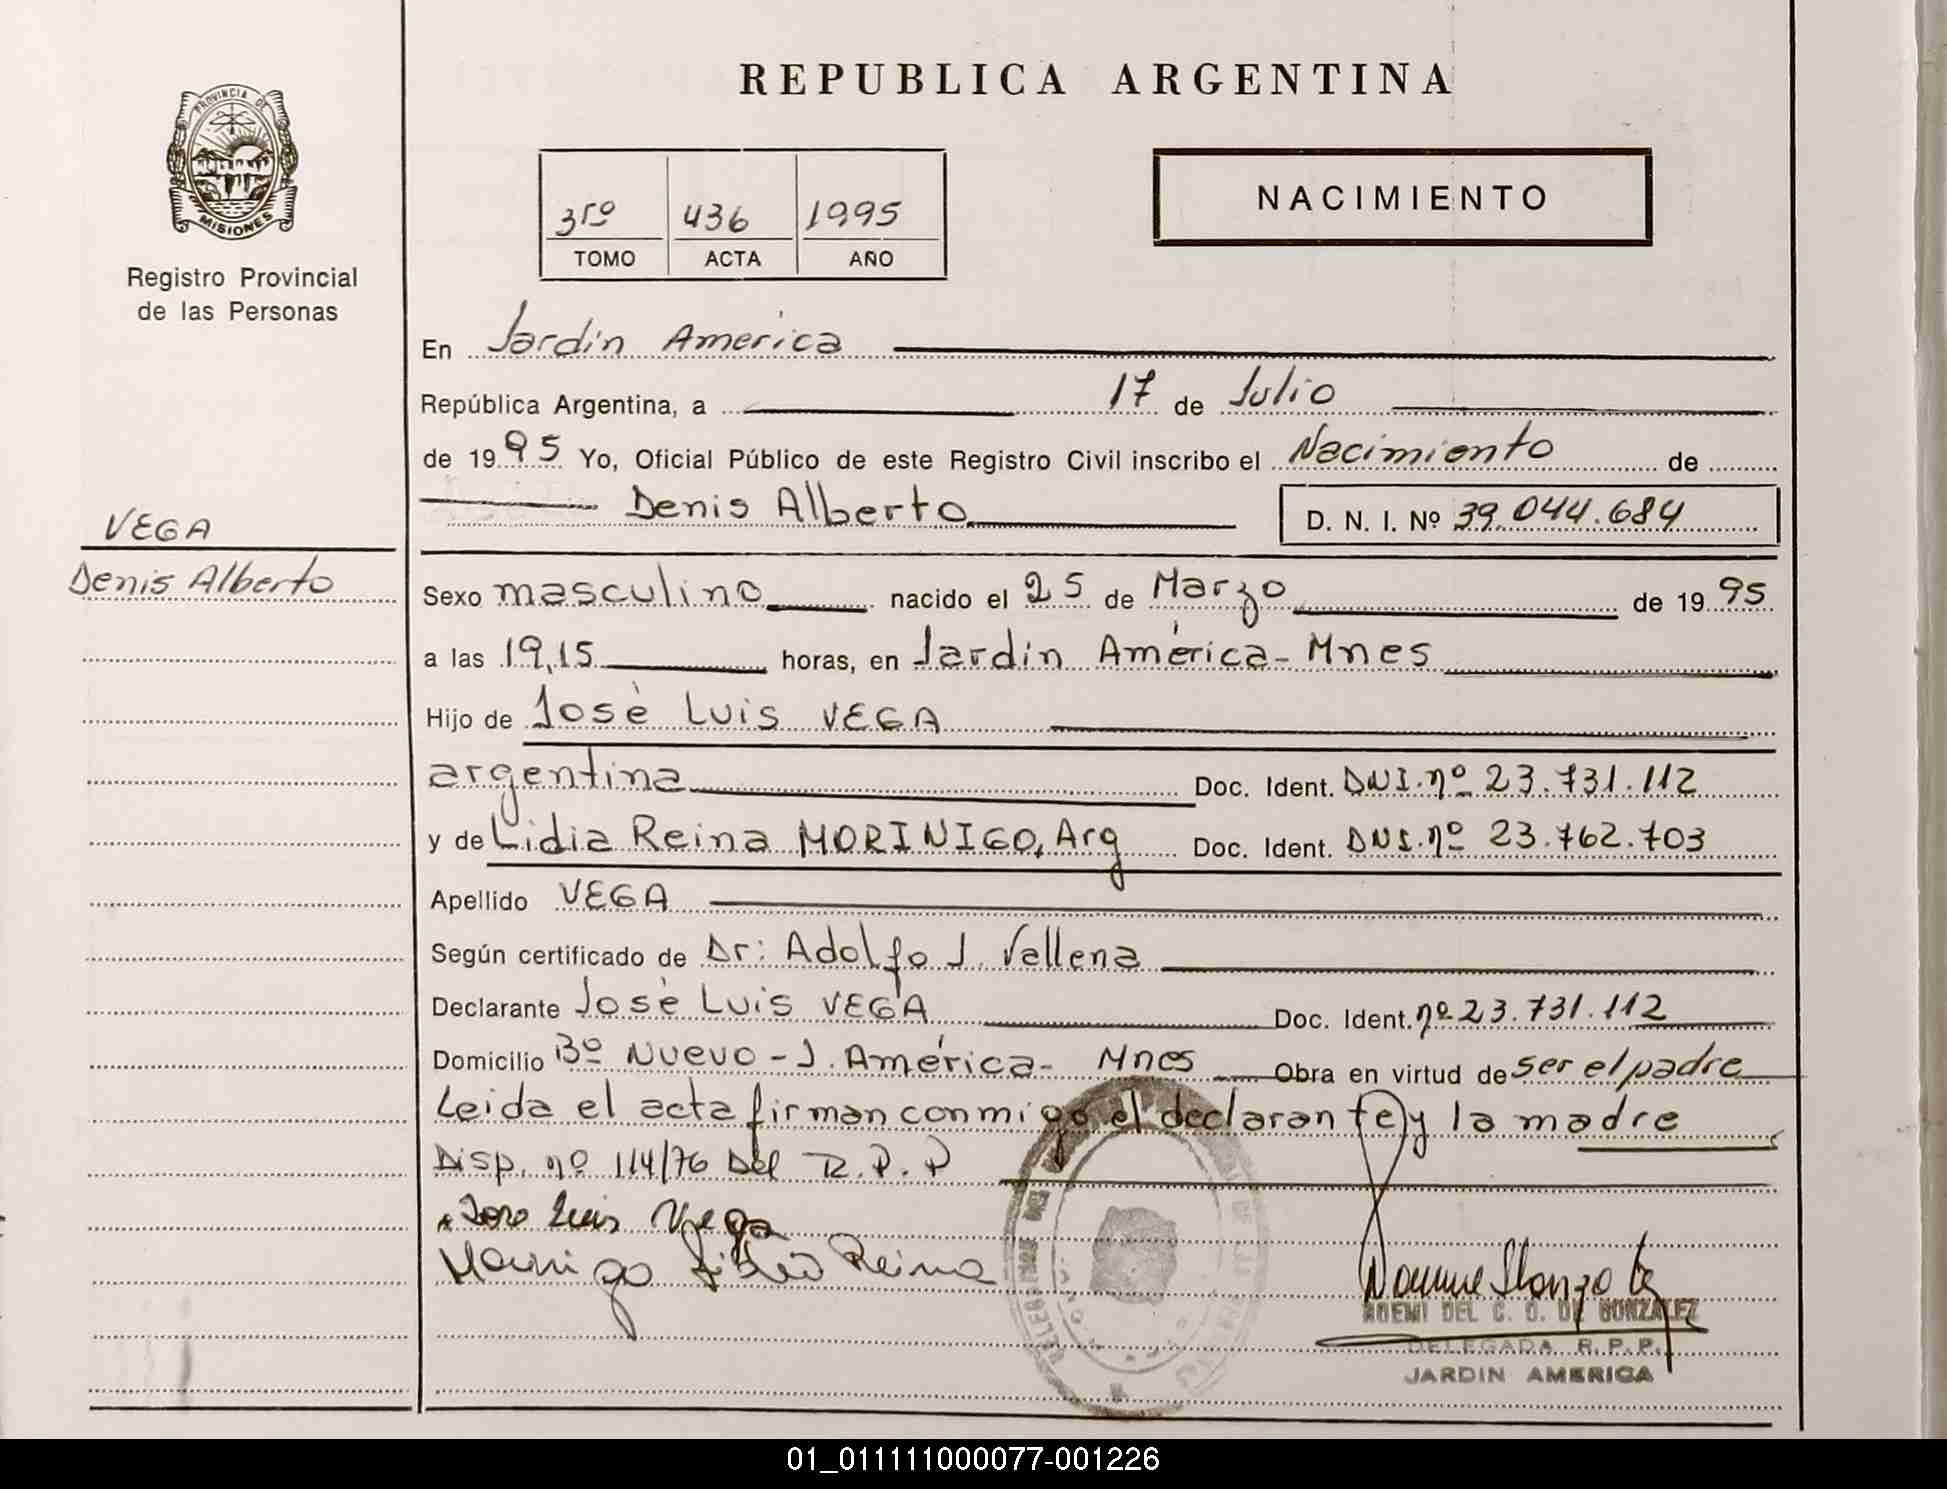 REPUBLICA ARGENTINA
PROVINCIA DE
MISIONES
Registro Provincial
de las Personas
3ro 436 1995
TOMO ACTA AÑO
NACIMIENTO
En Jardin America
República Argentina, a 17 de Julio
de 1995 Yo, Oficial Público de este Registro Civil inscribo el Nacimiento de
Denis Alberto D. N. I. Nº 39.044.684
VEGA
Denis Alberto
Sexo masculino nacido el 25 de Marzo de 1995
a las 19,15 horas, en Jardin América - Mnes
Hijo de José Luis VEGA
argentina Doc. Ident. DNI. nº 23.731.112
y de Lidia Reina MORINIGO, Arg Doc. Ident. DNI. nº 23.762.703
Apellido VEGA
Según certificado de Dr: Adolfo J. Vallena
Declarante José Luis VEGA Doc. Ident. nº 23.731.112
Domicilio Bº Nuevo - J. América - Mnes Obra en virtud de ser el padre
Leida el acta firman conmigo el declarante y la madre
Disp. nº 114/76 Del R.P.P
Jose Luis Vega
Morinigo Lidia Reina
NOEMI DEL C. O. DE GONZALEZ
DELEGADA R.P.P.
JARDIN AMERICA
01_011111000077-001226